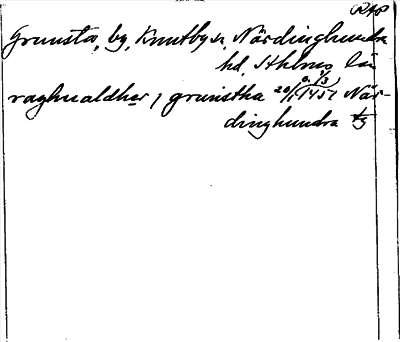 RAP
Grunsta, by, Knutby sn, Närdinghundra
hd, Sthlms län
raghualdher j grunstha 20/1 1451 o. 1/3 När-
dinghundra tg